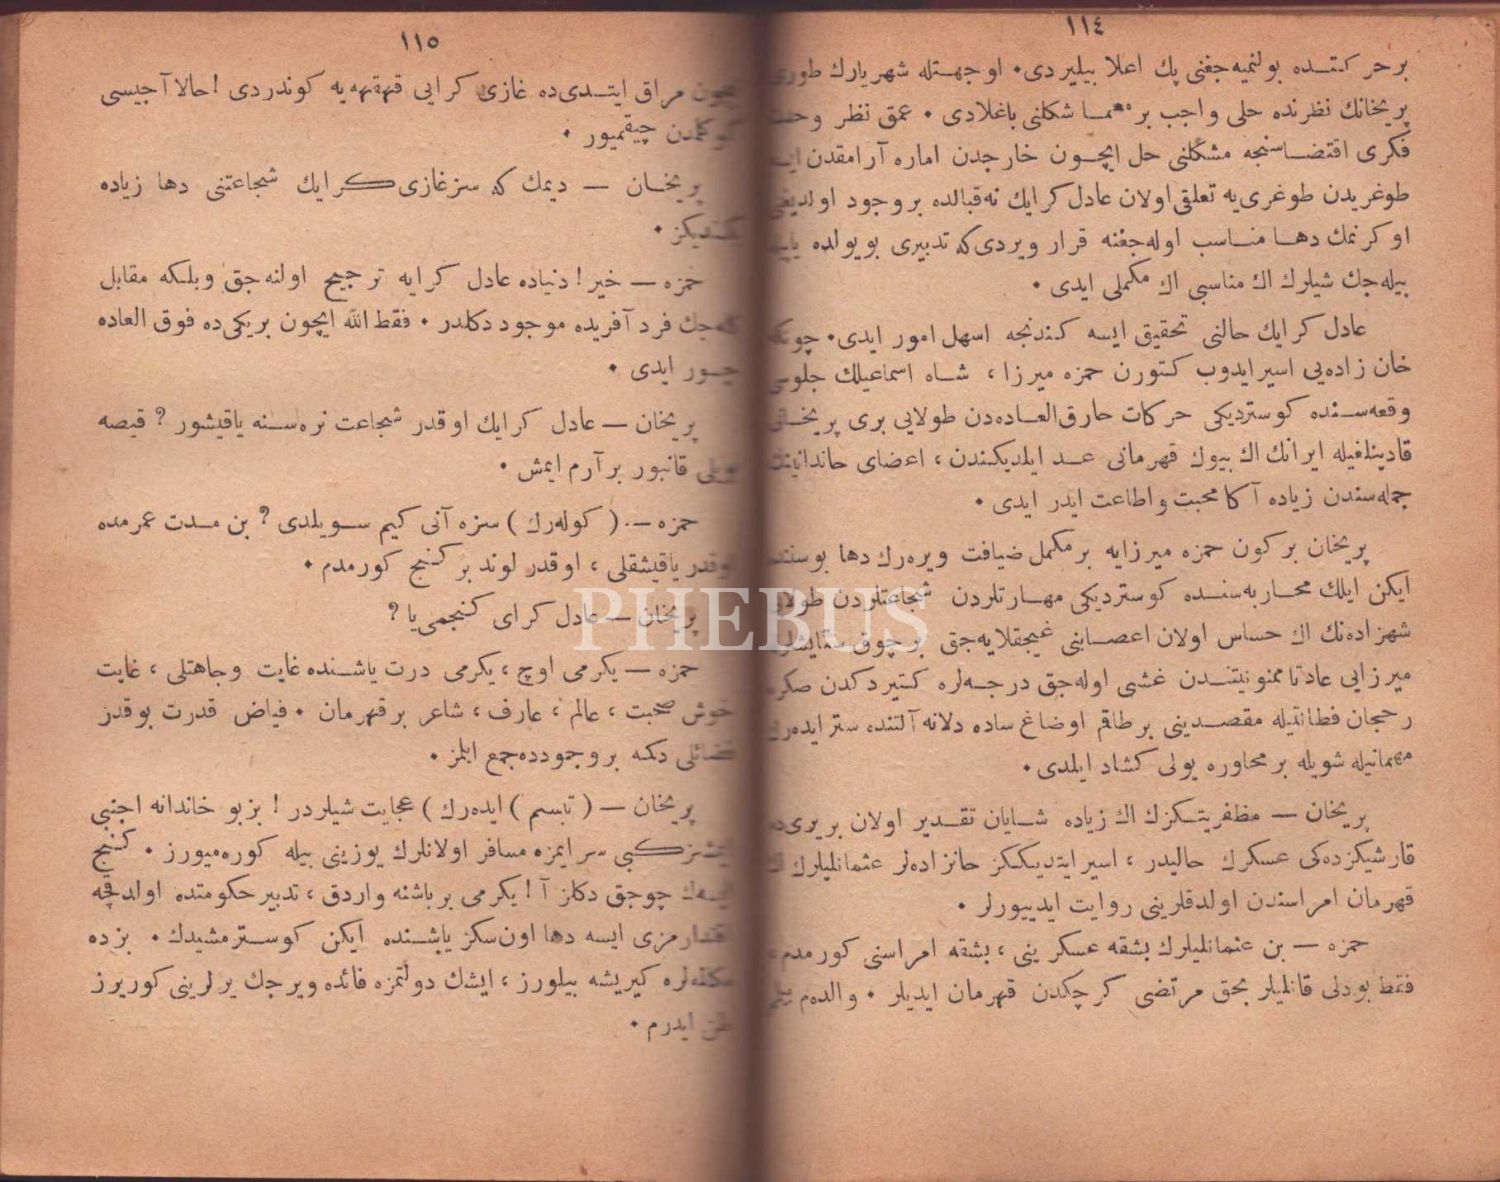 ١١٤
برحركتـده بولنميه‌جغنی پك اعلا بيليردی. اوجهـتله شهريارك طوری
پريخانك نظرنده حلی واجب بر معمـا شكلنی باغلادی. عمق نظر وحدت
فكری اقتضـاسنجه مشكلنی حل ايچـون خارجدن اماره آرامقدن ايسه
طوغريدن طوغری‌يه تعلقی اولان عادل كرايك نه‌قبالده بروجود اولديغی
اوكرنمك دهـا منـاسب اوله‌جغنه قرار ويردی‌كه تدبيری بويولده
بيله‌جك شيلرك اك مناسبی اك مكملی ايدی.
عادل كرايك حالنی تحقيق ايسه كندنجه اسهل امور ايدی. چونكه
خان زاده‌يی اسير ايدوب كتورن حمزه ميرزا، شـاه اسماعيلك جلوسی
وقعه‌سـنده كوسترديكی حركات خارق‌العاده‌دن طولايی بری پريخـانی
قادينلغيله ايرانك اك بيوك قهرمانی عـد ايلديكندن، اعضای خاندانينك
جمله‌سندن زياده آكا محبت واطاعت ايدر ايدی.
پريخان بركون حمزه ميرزايه برمكمل ضيافت ويره‌رك دها بوسنده
ايكن ايلك محـاربه‌سنـده كوسترديكی مهـارتلردن شجاعتلردن طولايی
شهزاده‌نك اك حساس اولان اعصـابنی غيجقلايه‌جق برچوق ستايشلرله
ميرزايی عادتا ممنونيتنـدن غشی اوله‌جق درجـه‌لره كتيردكدن صكره
رحجان فطانتيله مقصـدينی برطاقم اوضاغ ساده دلانه آلتنده ستر ايده‌رك
مهمانيله شويله برمحاوره يولی كشاد ايلدی.
پريخان — مظفريتـكزك اك زياده شـايان تقـدير اولان بريری‌ده
قارشيكزده‌كی عسكرك حاليدر، اسير ايتديككز خانزاده‌لر عثمانليلرك اك
قهرمان امراسندن اولدقلرينی روايت ايدييورلر.
حمزه — بن عثمانليلرك بشقه عسكرينی، بشقه امراسنی كورمدم،
فقط بودلی قانليلر بحق مرتضی كرچكدن قهرمان ايديلر. والده‌م
١١٥
ايچون مراق ايتـدی‌ده غازی كرايی قهقهه‌يه كوندردی! حالا آجيسی
كوكلمدن چيقميور.
پريخـان — ديمك كه سز غازی كـرايك شجاعتنی دها زياده
بكنـديكز.
حمزه — خير! دنياده عادل كرايه ترجيح اولنه‌جق وبلكه مقابل
كله‌جك فرد آفريده موجود دكلدر. فقط الله ايچون بريكی‌ده فوق العاده
جسـور ايدی.
پريخان — عادل كرايك اوقدر شجاعت نره‌سـنه ياقيشور؟ قيصه
بويلی قانبور برآرم ايمش.
حمزه —. (كوله‌رك) سزه آنی كيم سـويلدی؟ بن مـدت عمرمده
اوقدر ياقيشقلی، اوقدر لوند بر كنج كورمدم.
پريخان — عادل كرای كنجمی‌يا؟
حمزه — يكرمی اوچ، يكرمی درت ياشـنده غايت وجاهتلی، غايت
خوش صحبت، عالم، عارف، شاعر برقهرمان. فياض قدرت بوقدر
فضائلی دكمه بروجودده جمع ايلمز.
پريخان — (تبسم) ايده‌رك) عجايت شيلردر! بزبو خاندانه اجنبی
ايتشـز كـبی سرايمزه مسافر اولانلرك يوزينی بيله كوره‌ميورز. كنج
ايسه‌ك چوجق دكلز آ! يكرمی برباشنه واردق، تدبير حكومتده اولدقچه
اقتدارمزی ايسه دها اون‌سكز ياشـنده ايكن كوسـترمشيدك. بزده
كيريشه بيلورز، ايشك دولتمزه فائده ويرجك يرلرينی كوريرز
ظن ايدرم.